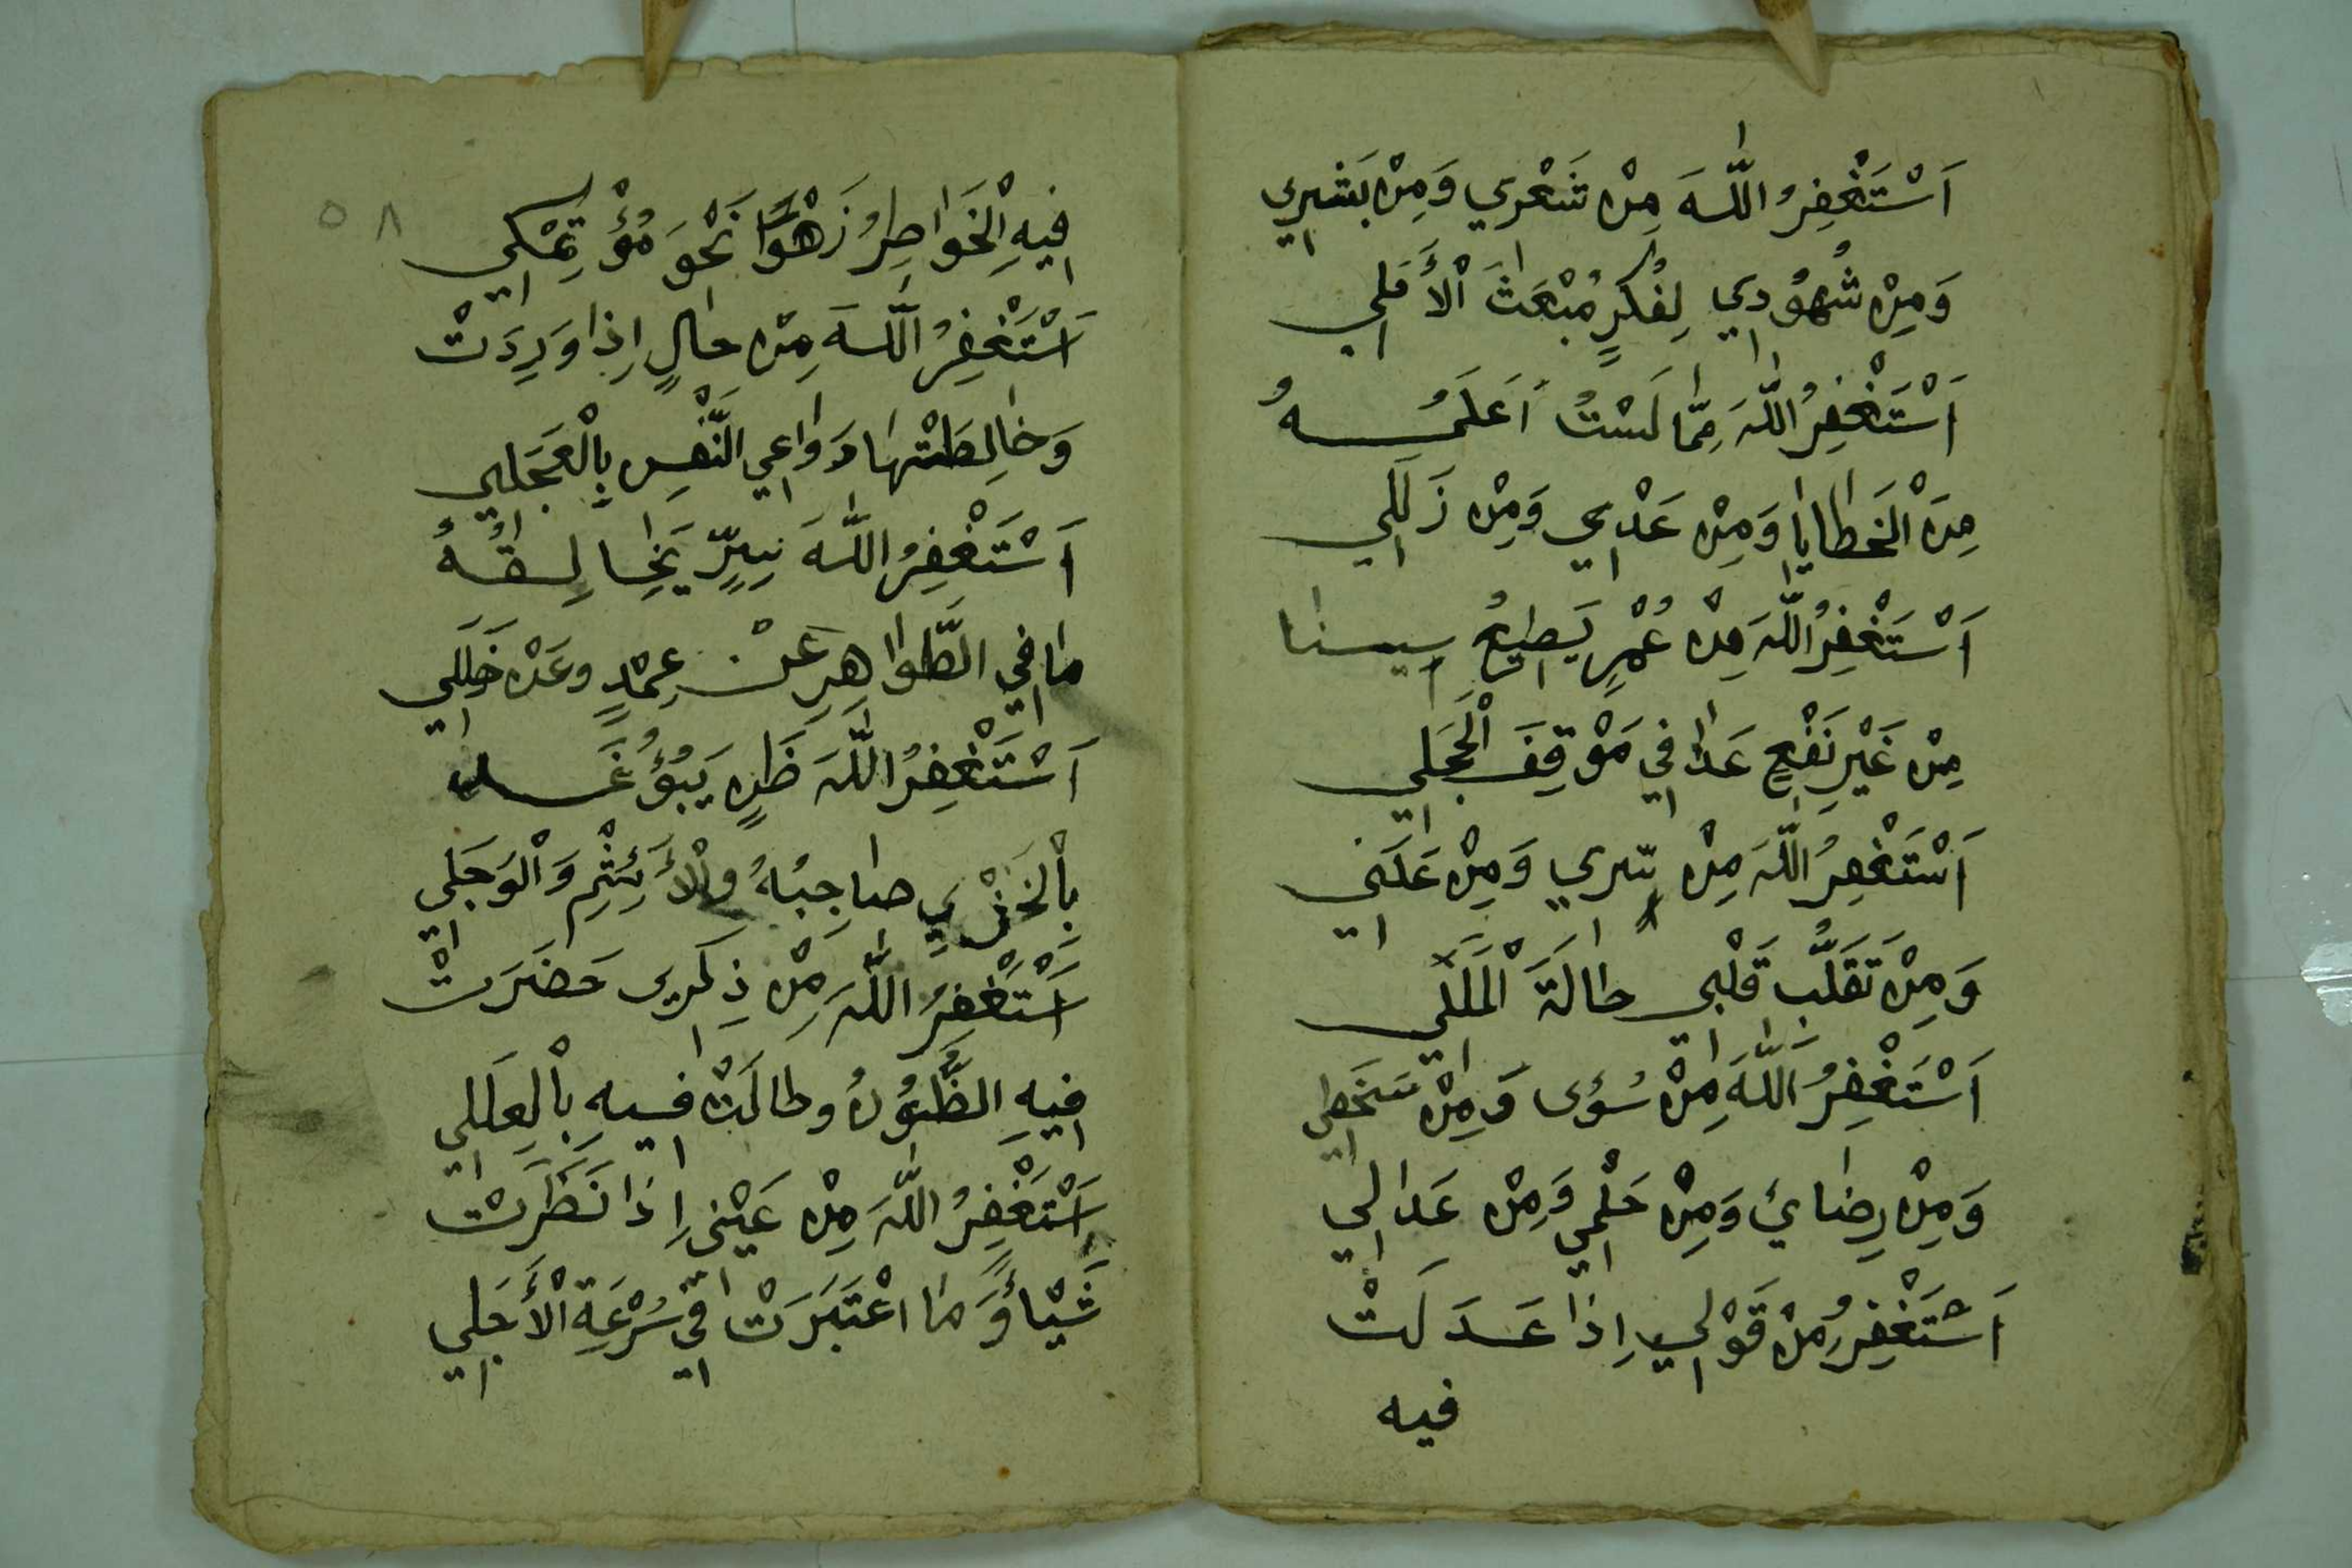 اَسْتَغْفِرُ اللّٰهَ مِنْ شَعْرِي وَمِنْ بَشَرِي
وَمِنْ شُهُوْدِي لِفُكُرٍ مُبْعَثَ الْأَمَلِي
اَسْتَغْفِرُ اللّٰهَ مِمَّا لَسْتُ اَعْلَمُهُ
مِنَ الْخَطَايَا وَمِنْ عَدِّي وَمِنْ زَلَلِي
اَسْتَغْفِرُ اللّٰهَ مِنْ عُمْرٍ يَضِيْعُ سِنَا
مِنْ غَيْرِ نَفْعٍ غَدًا فِي مَوْقِفَ الْجَلِي
اَسْتَغْفِرُ اللّٰهَ مِنْ سِّرِي وَمِنْ عَلَنِي
وَمِنْ تَقَلُّبَ قَلْبِي حَالَةَ الْمَلَلِي
اَسْتَغْفِرُ اللّٰهَ مِنْ سُؤى وَمِنْ سَخَطِي
وَمِنْ رِضَائي وَمِنْ حَلْمِي وَمِنْ عَدَالِي
اَسْتَغْفِرُ مِنْ قَوْلِي اِذَا عَدَلَتْ
فيه
٥٨
فِيْهِ الْخَوَاطِرُ زَهْوًا نَحْوَ مُؤْتِمْكِي
اَسْتَغْفِرُ اللّٰهَ مِنْ حَالٍ اِذَا وَرِدَتْ
وَخَالِطَتْهَا دَوَاعِي النَّفْسِ بِالْعَجَلِي
اَسْتَغْفِرُ اللّٰهَ سِرٍّ يَخَالِفُهُ
مَا فِي الظَّوَاهِرِ عَنْ عِمْدٍ وعَنْ خَلَلِي
اَسْتَغْفِرُ اللّٰهَ ظَنٍ يَبُؤُ غَدا
بِالْخَزْيِ صَاحِبُهُ وَالْأَئِثْمِ وَالْوَجَلِي
اَسْتَغْفِرُ اللّٰهَ مِنْ ذِكْرِى حَضَرَتْ
فِيْهِ الظُّنُوْنُ وطَالَتْ فِيْهِ بِالْعِلَلِي
اَسْتَغْفِرُ اللّٰهَ مِنْ عَيْنِي اِذَا نَظَرَتْ
شَيْأً وَمَا اعْتَبَرَتْ فِي سُرْعَةِ الْأَجَلِي